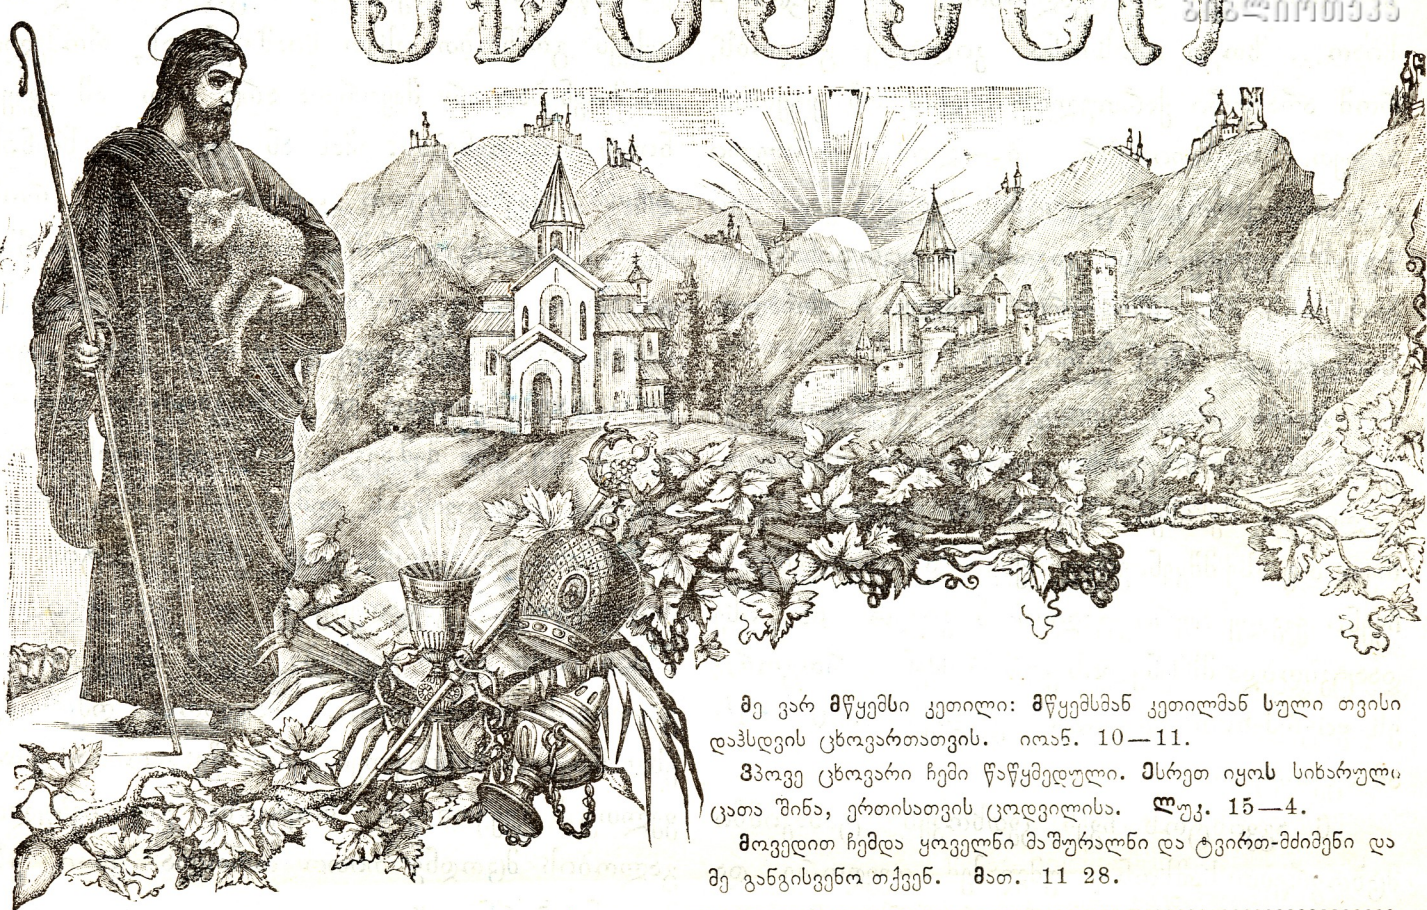 ბიბლიოთეკა
მე ვარ მწყემსი კეთილი: მწყემსმან კეთილმან სული თვისი
დაჰსდვის ცხოვართათვის. იოან. 10—11.
ვპოვე ცხოვარი ჩემი წაწყმედული. ესრეთ იყოს სიხარული
ცათა შინა, ერთისათვის ცოდვილისა. ლუკ. 15—4.
მოვედით ჩემდა ყოველნი მაშურალნი და ტვირთ-მძიმენი და
მე განგისვენო თქვენ. მათ. 11 28.